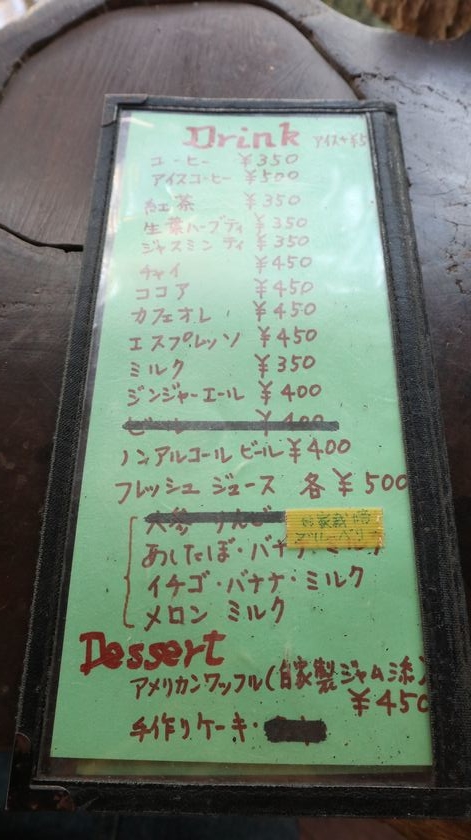 Drink アイス+¥5
コーヒー ¥350
アイスコーヒー ¥500
紅茶 ¥350
生葉ハーブティ ¥350
ジャスミンティ ¥350
チャイ ¥450
ココア ¥450
カフェオレ ¥450
エスプレッソ ¥450
ミルク ¥350
ジンジャーエール ¥400
ビール ¥400
ノンアルコールビール ¥400
フレッシュジュース 各¥500
人参 りんご
ブルーベリー
あしたば・バナナ・ミルク
イチゴ・バナナ・ミルク
メロン ミルク
Dessert
アメリカンワッフル(自家製ジャム添)
¥450
手作りケーキ・